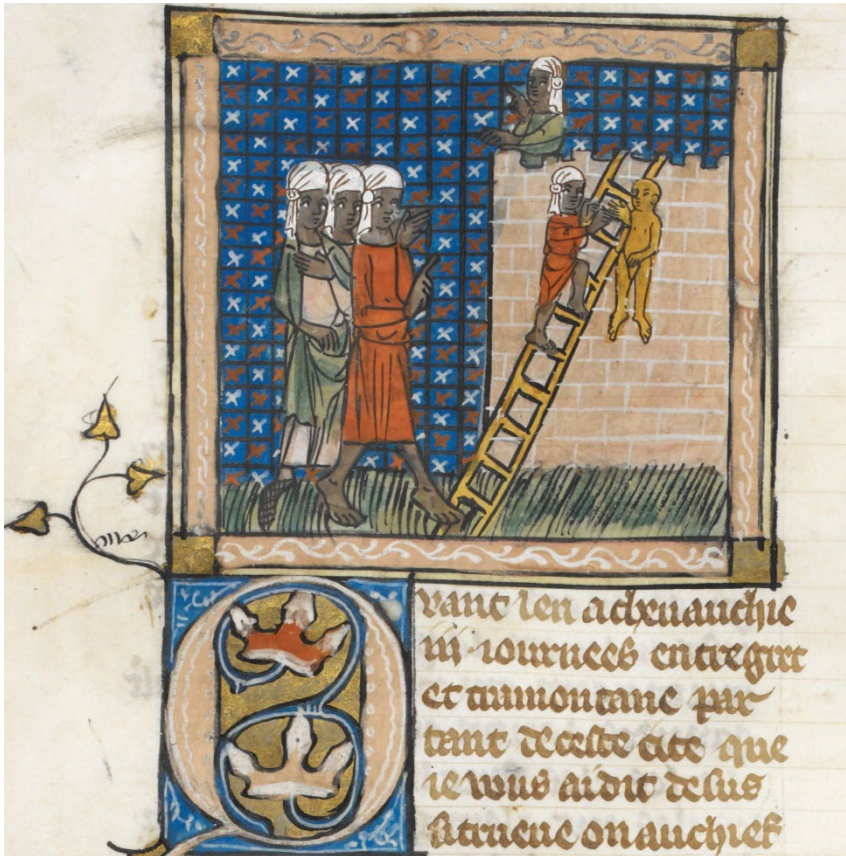 Quant len a cheuauchie
iiij iournees entre grec
et tramontane par
tant de ceste cite que
ie vous ai dit desus
si trueue on au chief